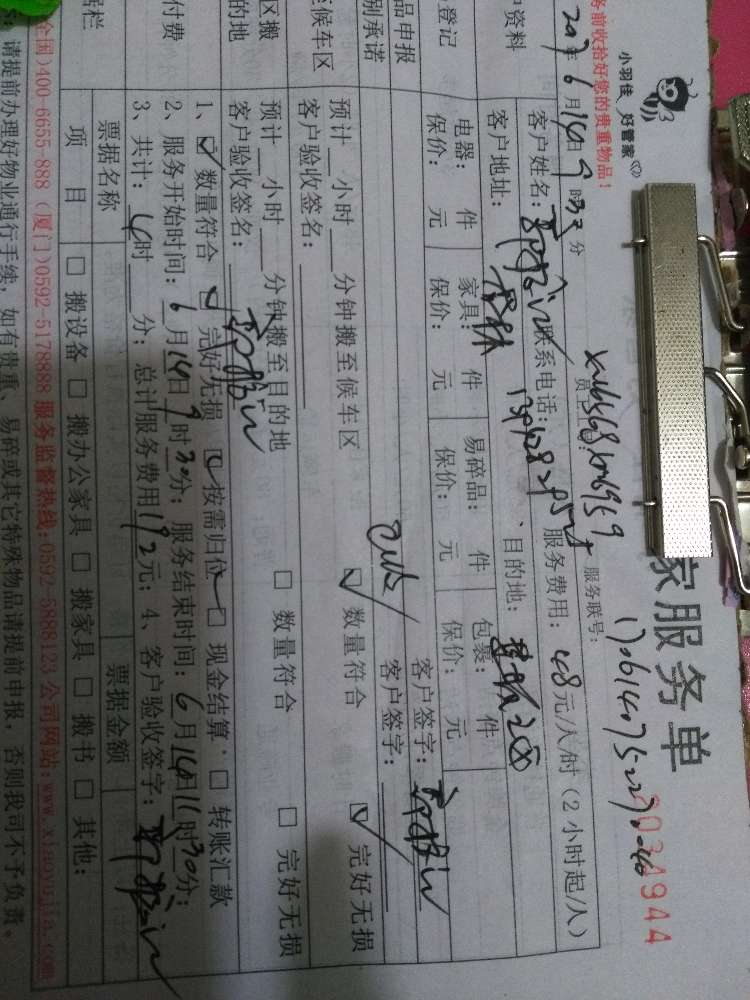 家服务单
2034944
小羽佳 好管家
务前收拾好您的贵重物品！
服务联号：
2017年6月14日9时30分
客户姓名： 联系电话： 服务费用：48元/人/时（2小时起/人）
客户地址： 、目的地：
电器： 件 家具： 件 易碎品： 件 包裹： 件
保价： 元 保价： 元 保价： 元 保价： 元
户资料
登记
品申报
别承诺
客户签字：
客户签字：
至候车区
预计__小时__分钟搬至候车区 ☑ 数量符合 ☑ 完好无损
客户验收签名：
区搬
的地
预计__小时__分钟搬至目的地 □ 数量符合 □ 完好无损
客户验收签名：
付费
1、☑ 数量符合 ☑ 完好无损 ☑ 按需归位 □ 现金结算； □ 转账汇款
2、服务开始时间：6月14日9时30分；服务结束时间：6月14日11时30分；
3、共计：4时__分；总计服务费用192元；4、客户验收签字：
据栏
票据名称 票据金额
项 目 □ 搬设备 □ 搬办公家具 □ 搬家具 □ 搬书 □ 其他：
全国)400-6655-888 (厦门)0592-5178888 服务监督热线:0592-5888123 公司网站:www.xiaoyujia.com
：请提前办理好物业通行手续，如有贵重、易碎或其它特殊物品请提前申报，否则我司不予负责。